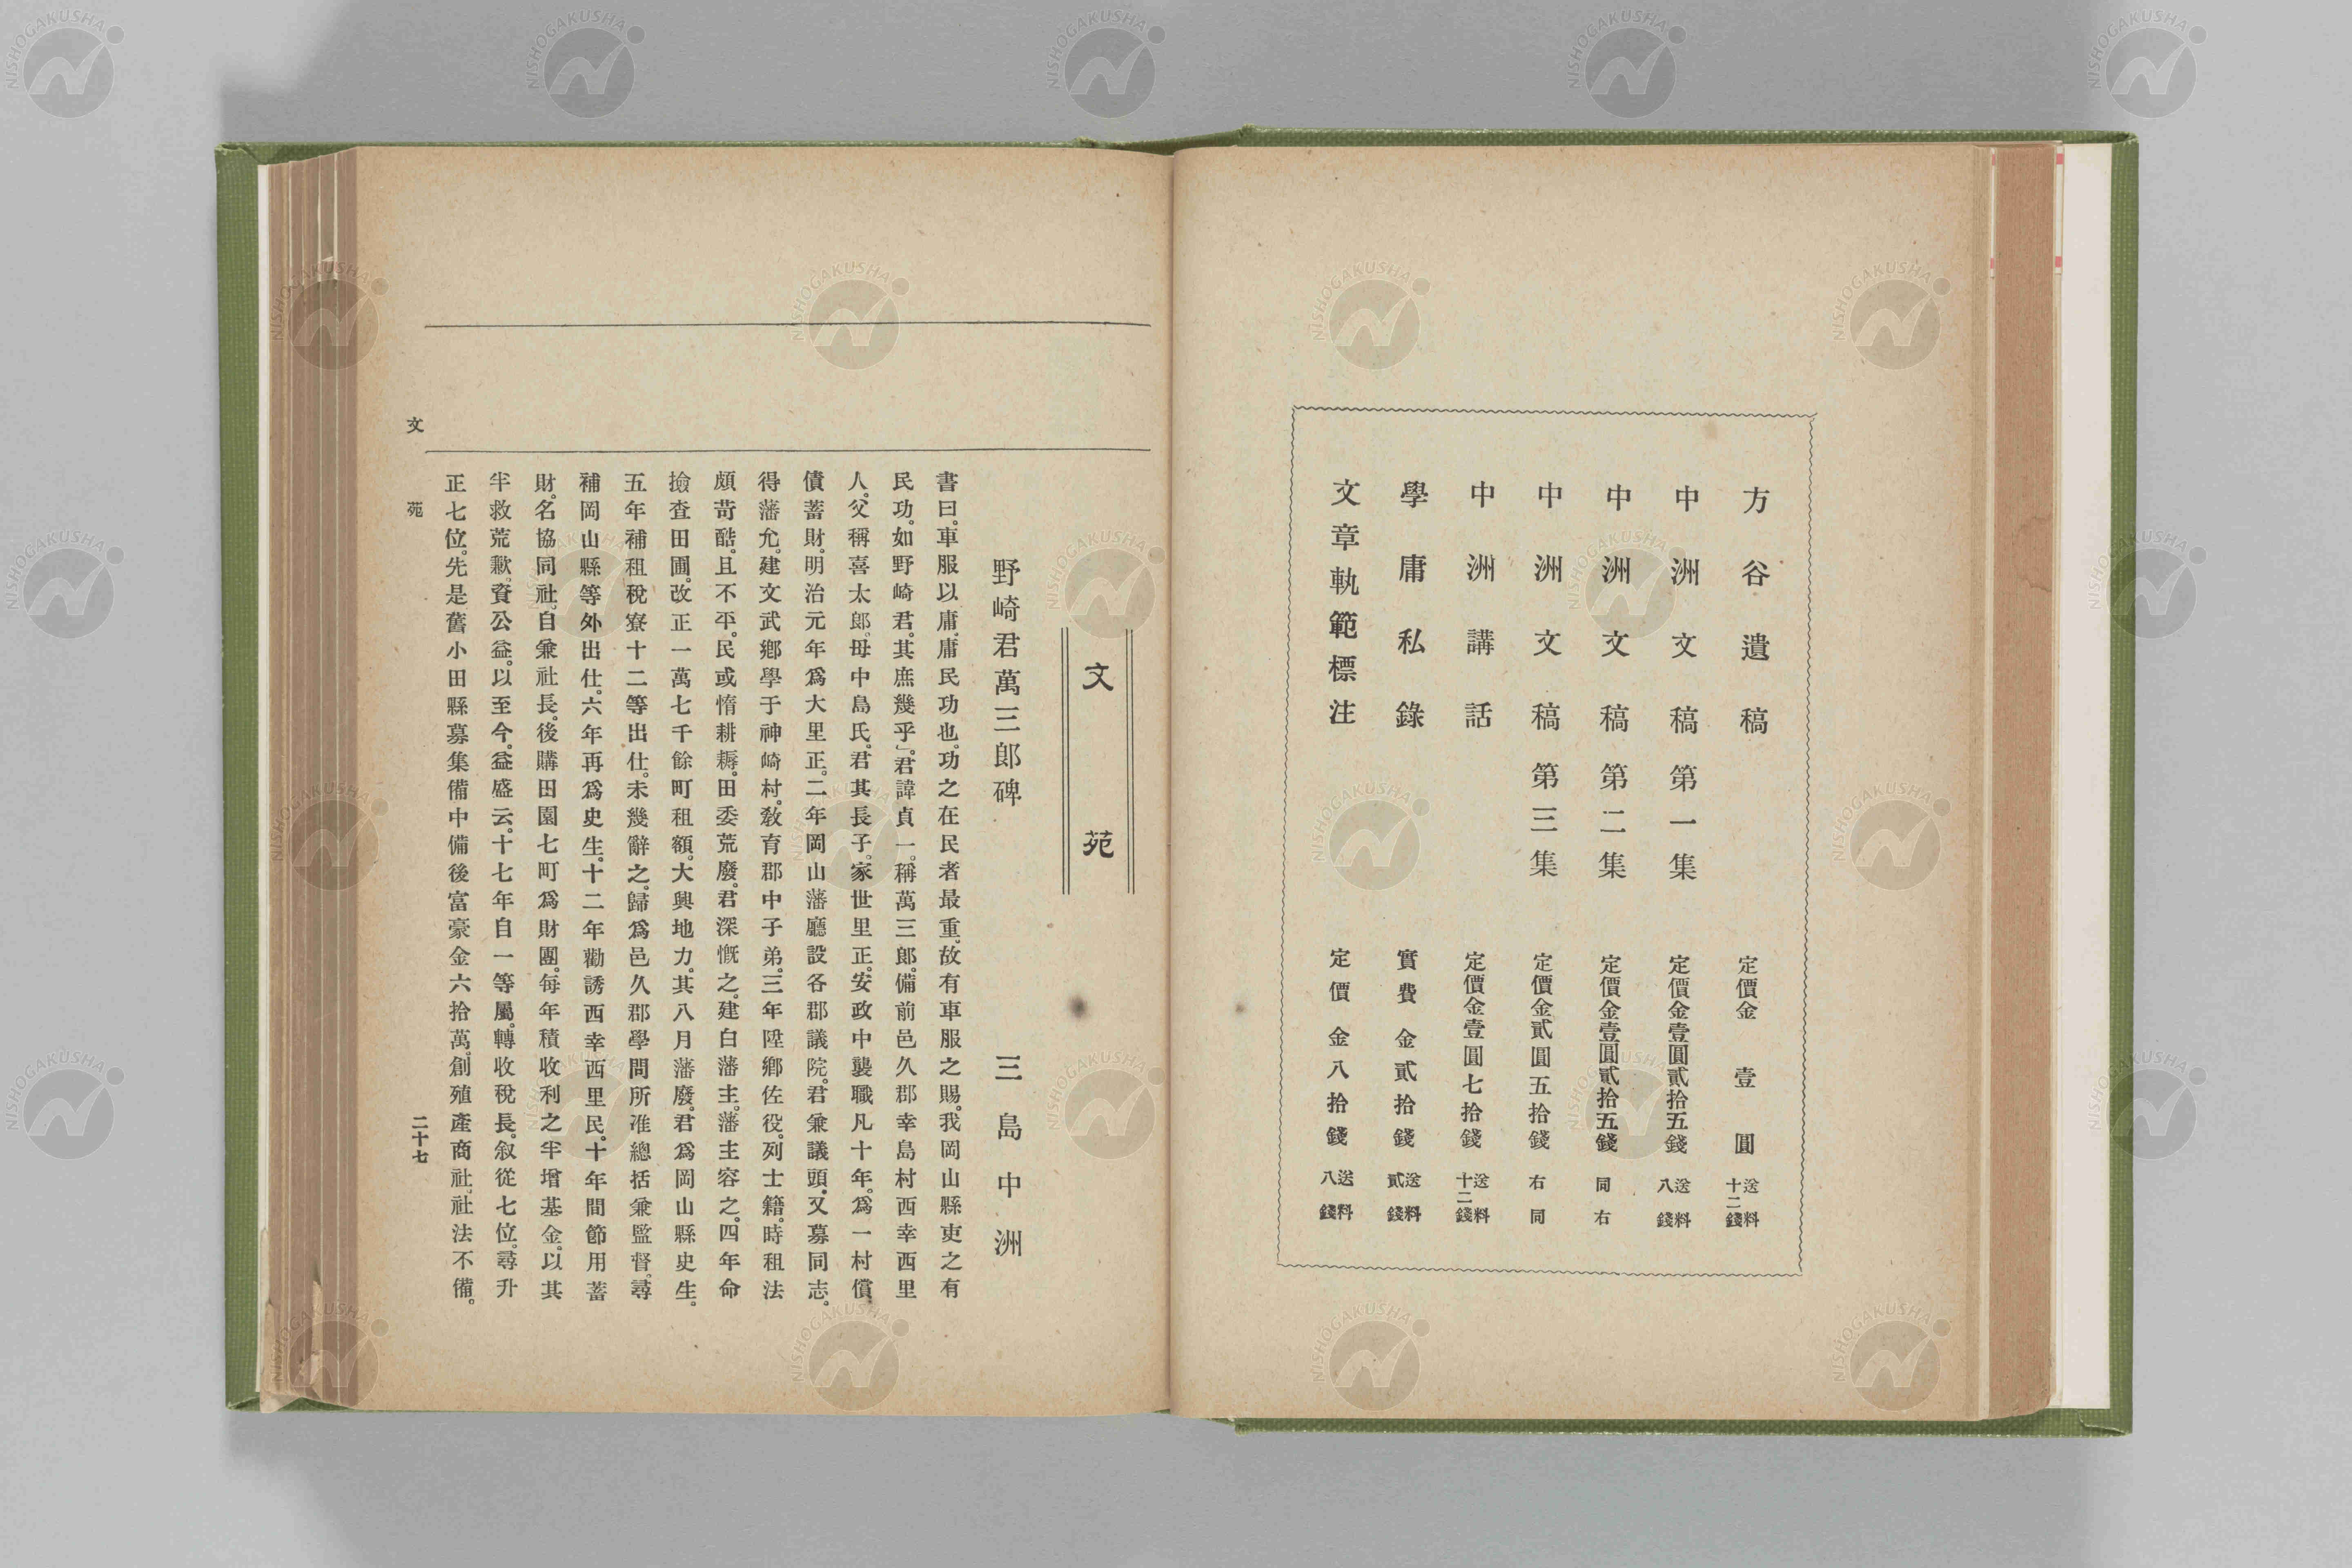 方谷遺稿 定價金壹圓 送料十二錢
中洲文稿第一集 定價金壹圓貳拾五錢 送料八錢
中洲文稿第二集 定價金壹圓貳拾五錢 同右
中洲文稿第三集 定價金貳圓五拾錢 右同
中洲講話 定價金壹圓七拾錢 送料十二錢
學庸私錄 實費金貳拾錢 送料貳錢
文章軌範標注 定價金八拾錢 送料八錢
文苑
野崎君萬三郎碑 三島中洲
書曰。車服以庸。庸民功也。功之在民者最重。故有車服之賜。我岡山縣吏之有
民功。如野崎君。其庶幾乎」。君諱貞一。稱萬三郎。備前邑久郡幸島村西幸西里
人。父稱喜太郎。母中島氏。君其長子。家世里正。安政中襲職凡十年。爲一村償
債蓄財。明治元年爲大里正。二年岡山藩廳設各郡議院。君兼議頭。又募同志。
得藩允。建文武鄕學于神崎村。敎育郡中子弟。三年陞鄕佐役。列士籍。時租法
頗苛酷。且不平。民或惰耕耨。田委荒廢。君深慨之。建白藩主。藩主容之。四年命
撿査田圃。改正一萬七千餘町租額。大興地力。其八月藩廢。君爲岡山縣史生。
五年補租稅寮十二等出仕。未幾辭之。歸爲邑久郡學問所准總括兼監督。尋
補岡山縣等外出仕。六年再爲史生。十二年勸誘西幸西里民。十年間節用蓄
財。名協同社。自兼社長。後購田園七町爲財團。每年積收利之半增基金。以其
半救荒歉。資公益。以至今。益盛云。十七年自一等屬。轉收稅長。叙從七位。尋升
正七位。先是舊小田縣募集備中備後富豪金六拾萬。創殖產商社。社法不備。
文苑 二十七
NISHOGAKUSHA